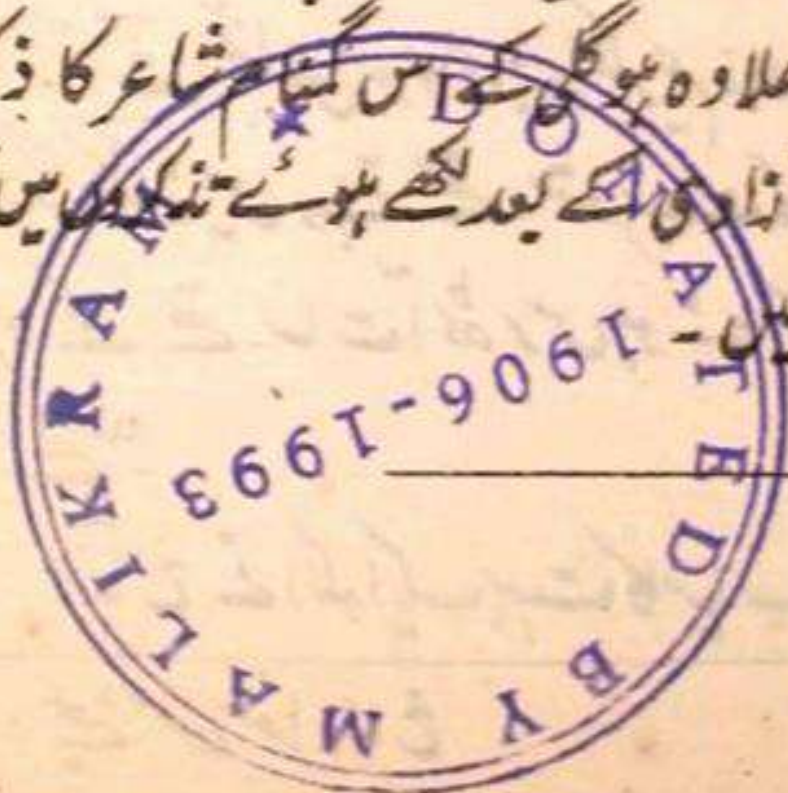 علاوہ ہوگلی کے اس گمنام شاعر کا
کے بعد لکھے ہوئے تذکروں میں
ہیں۔
DONATED BY MALIKRAM *
1906-1993